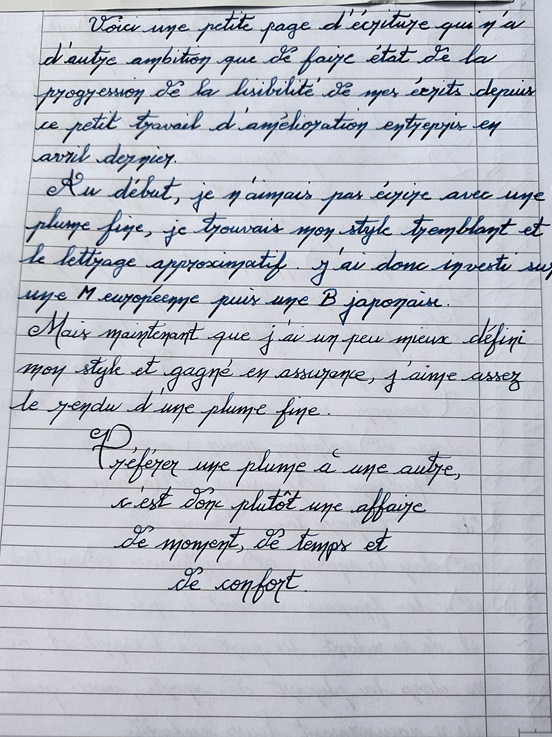 Voici une petite page d'écriture qui n'a
d'autre ambition que de faire état de la
progression de la lisibilité de mes écrits depuis
ce petit travail d'amélioration entrepris en
avril dernier.
Au début, je n'aimais pas écrire avec une
plume fine, je trouvais mon style tremblant et
le lettrage approximatif. j'ai donc investi sur
une M européenne puis une B japonaise.
Mais maintenant que j'ai un peu mieux défini
mon style et gagné en assurance, j'aime assez
le rendu d'une plume fine.
Préférer une plume à une autre,
c'est donc plutôt une affaire
de moment, de temps et
de confort.